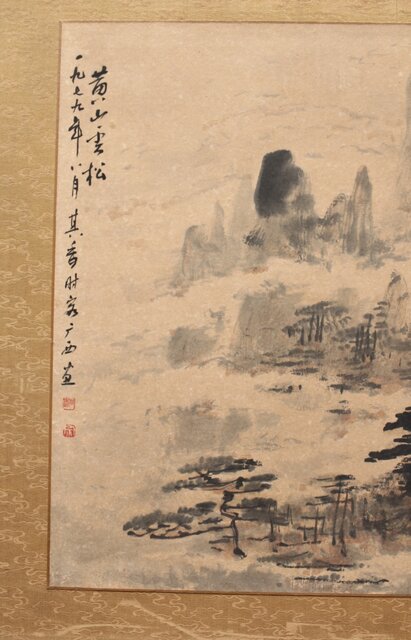 黄山云松
一九七九年八月其香时客广西画